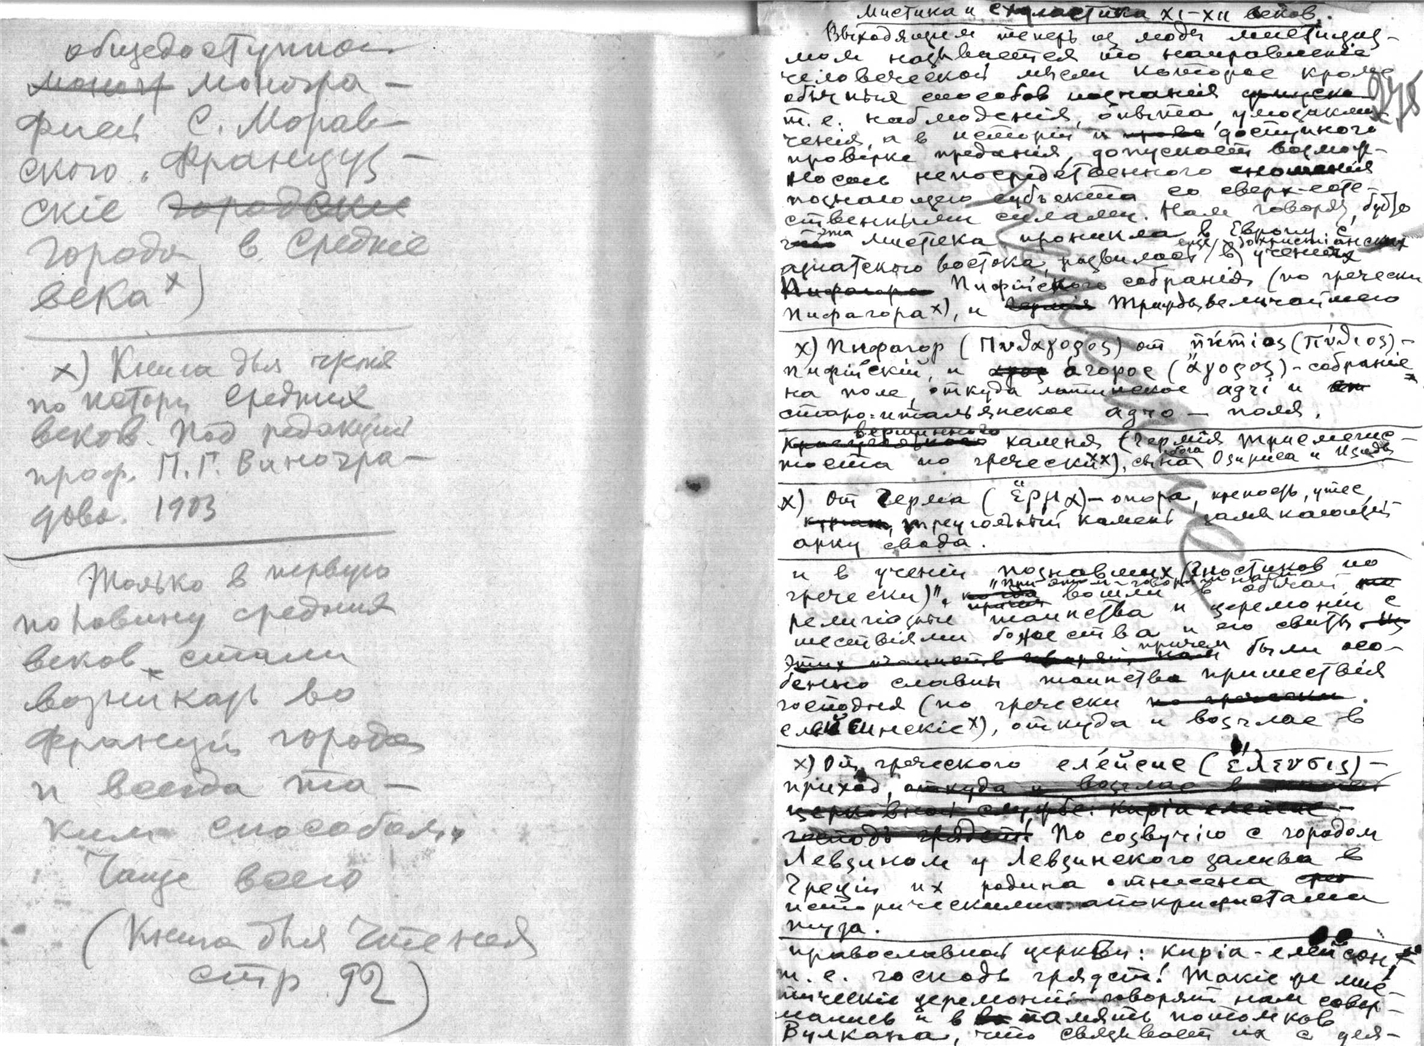 общедоступной
моног моногра-
фией С. Морав-
ского „Француз-
скіе городски
города в Средніе
века х)
х) Книга для чтенія
по исторіи Средних
веков. Под редакціей
проф. П. Г. Виногра-
дова. 1903
Только в первую
половину средних
веков стали
возникать во
Франціи города
и всегда та-
ким способом.
Чаще всего
(Книга для чтенія
стр 92)
Мистика и схоластика XI-XII веков.
Выходящим теперь из моды мистициз-
мом называется то направленіе
человеческой мысли которое кроме
обычных способов познанія
278
т. е. наблюденія, опыта, умозаклю-
ченія, а в исторіи и доступного
проверке преданія, допускает возмож-
ность непосредственного сношенія
познающего субъекта со сверх-есте-
ственными силами. Нам говорят, будто
эта мистика проникла в Европу с
азиатского востока, развилась еще в дохристіанских ученіях
Пифагора Пифійского собранія (по гречески
Пифагора х), и Трижды величайшего
х) Пифагор (Πυθαγορος) от питіос (πύθιος)-
пифійскій, и агорос (ἄγορος)-собраніе
на поле, откуда латинское agri и
старо-итальянское agro - поля.
вершинного
камня (Гермія Трисмегис-
тоса по гречески хх), сына бога Озириса и Изиды
х) От Герма (Ἕρμα)-опора, крепость, утес,
треугольный камень замыкающій
арку свода.
и в ученіи познавших (гностиков по
гречески)". "При этом - говорят нам -
вошли в обычай
религіозные таинства и церемоніи с
шествіями божества и его свиты.
причем были осо-
бенно славны таинства пришествія
господня (по гречески по гречески
елейсинскіе х), откуда и возглас в
х) От греческого елейсис (Ἔλευσις)-
приход, откуда и возглас в
церковной службе: киріа елейсе -
господь грядет! По созвучію с городом
Левзином у Левзинского залива в
Греціи их родина отнесена
историческими апокрифистами
туда.
православной церкви: киріа-елейсон,
т. е. господь грядет! Такіе же мис-
тическіе церемоніи - говорят нам совер-
шались и в память потомков
Вулкана, что связывает их с дея-